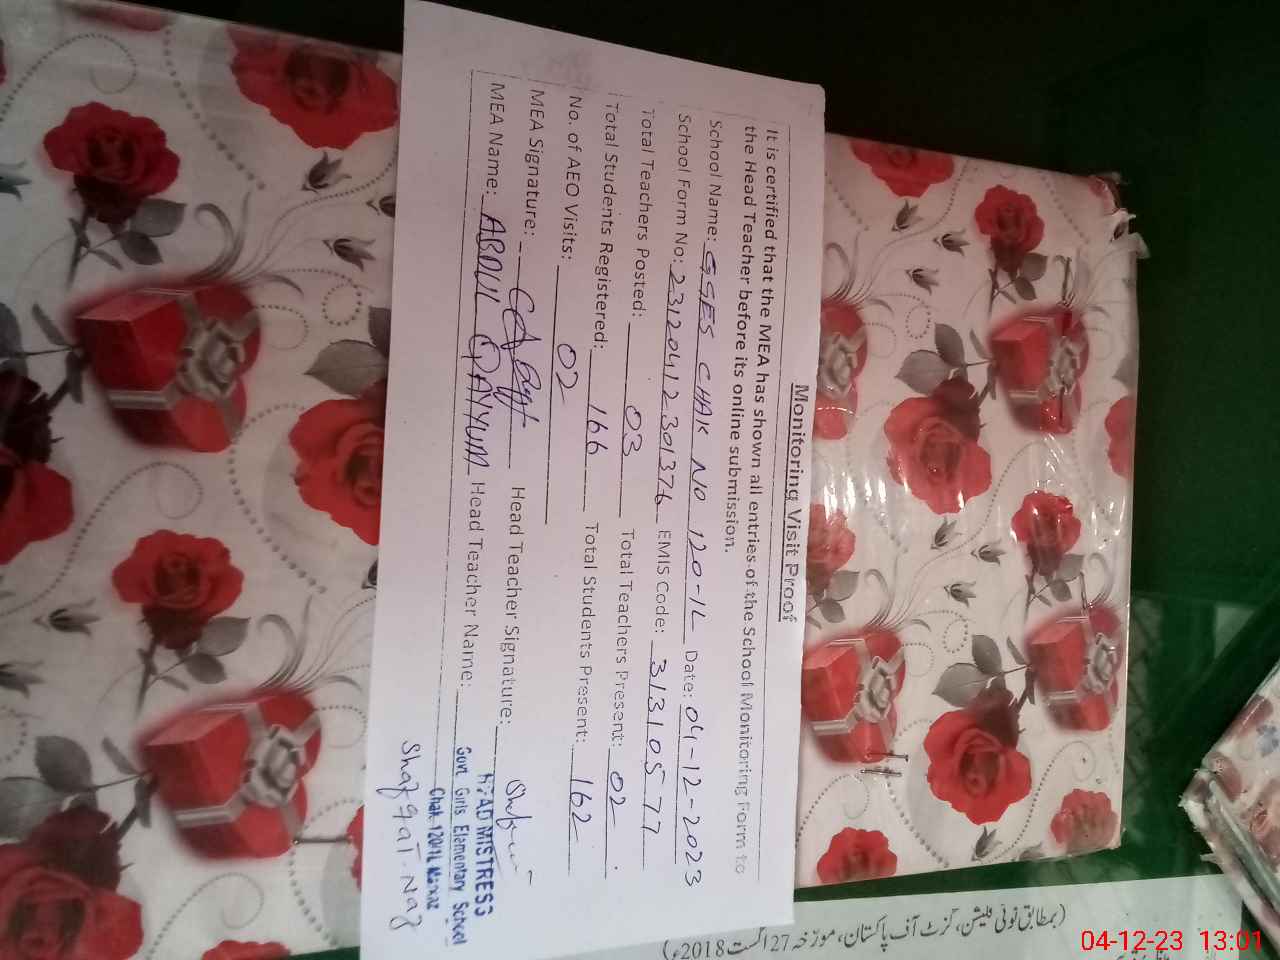 Monitoring Visit Proof
It is certified that the MEA has shown all entries of the School Monitoring Form to
the Head Teacher before its online submission.
School Name: GGES CHAK NO 120-1L Date: 04-12-2023
School Form No: 23120412301376 EMIS Code: 31310577
Total Teachers Posted: 03 Total Teachers Present: 02
Total Students Registered: 166 Total Students Present: 162
No. of AEO Visits: 02
MEA Signature: Head Teacher Signature:
MEA Name: ABDUL QAYYUM Head Teacher Name:
HEAD MISTRESS
Govt. Girls Elementary School
Chak. 120/1L
Shafqat Naz
(بمطابق نوٹی فکیشن، گزٹ آف پاکستان، مورخہ 27 اگست 2018ء)
04-12-23 13:01